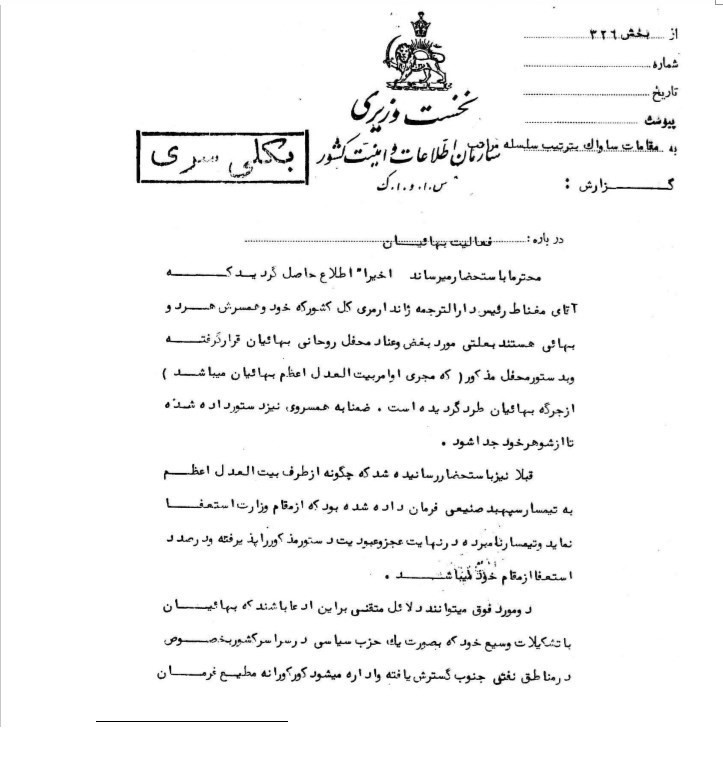 از بخش ۳۲۶
شماره
تاریخ
پیوست
به مقامات ساواك بترتیب سلسله مراتب
گـــــزارش :
نخست وزیری
سازمان اطلاعات و امنیت کشور
س.ا.و.ا.ک
بکلی سری
درباره : فعالیت بهائیـــان
محترما باستحضار میرساند اخیرا" اطلاع حاصل گردیـد کـــه
آقای مغناط رئیس دارالترجمه ژاندارمری کل کشور که خود و همسرش هـــرد و
بهائی هستند بعلتی مورد بغض وعناد محفل روحانی بهائیان قرارگرفتـــه
وبدستور محفل مذکور ( که مجری اوامربیت العدل اعظم بهائیان میباشـــد )
ازجرگه بهائیان طرد گردیده است . ضمنا به همسروی نیزد ستورداده شده
تا ازشوهرخود جداشود .
قبلا نیزباستحضار رسانیده شد که چگونه ازطرف بیت العدل اعظـــم
به تیمسارسپهبد صنیعی فرمان داده شده بود که ازمقام وزارت استعفـــا
نماید وتیمسارنامبرده درنهایت عجزوعبودیت دستورمذکورراپذیرفته ودرصدد
استعفا ازمقام خود میباشـــد .
دومورد فوق میتوانند دلائل متقنی براین ادعا باشند که بهائیـــان
باتشکیلات وسیع خود که بصورت یك حزب سیاسی درسراسرکشوربخصـــوص
درمناطق نفتی جنوب گسترش یافته واداره میشود کورکورانه مطیـــع فرمـــان